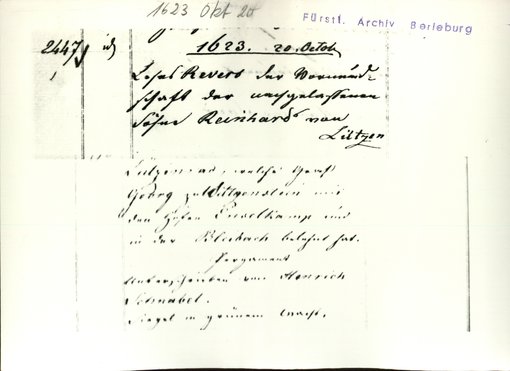 1623 Okt 20
Fürstl. Archiv Berleburg
2447
1623. 20. Octob
Lehns Revers der Vormund-
schaft der nachgelassenen
Söhne Reinhards von
Lützen
welche Graf
Georg zu Wittgenstein mit
den Höfen und
in der belehnt hat.
Pergament
Unterschrieben von Henrich
Schnabel.
Siegel in grünem Wachs.